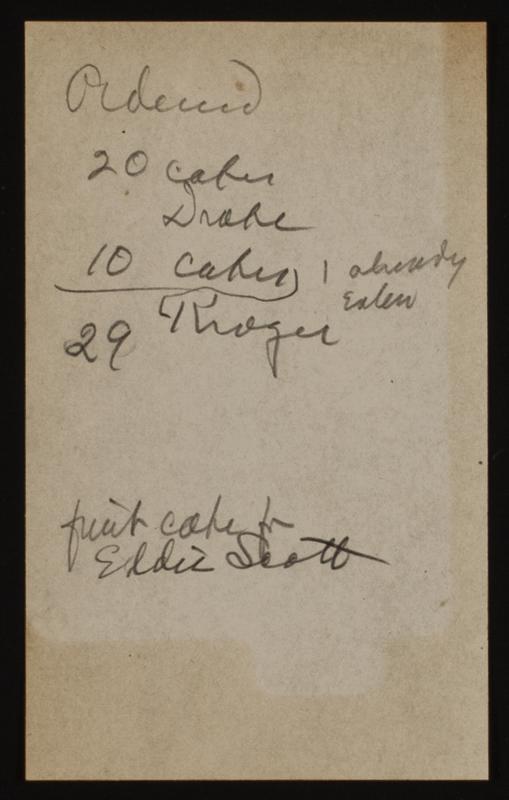 Ordered
20 cakes
Drake
10 cakes 1 already
eaten
Kroger
29
fruit cake for
Eddie Scott